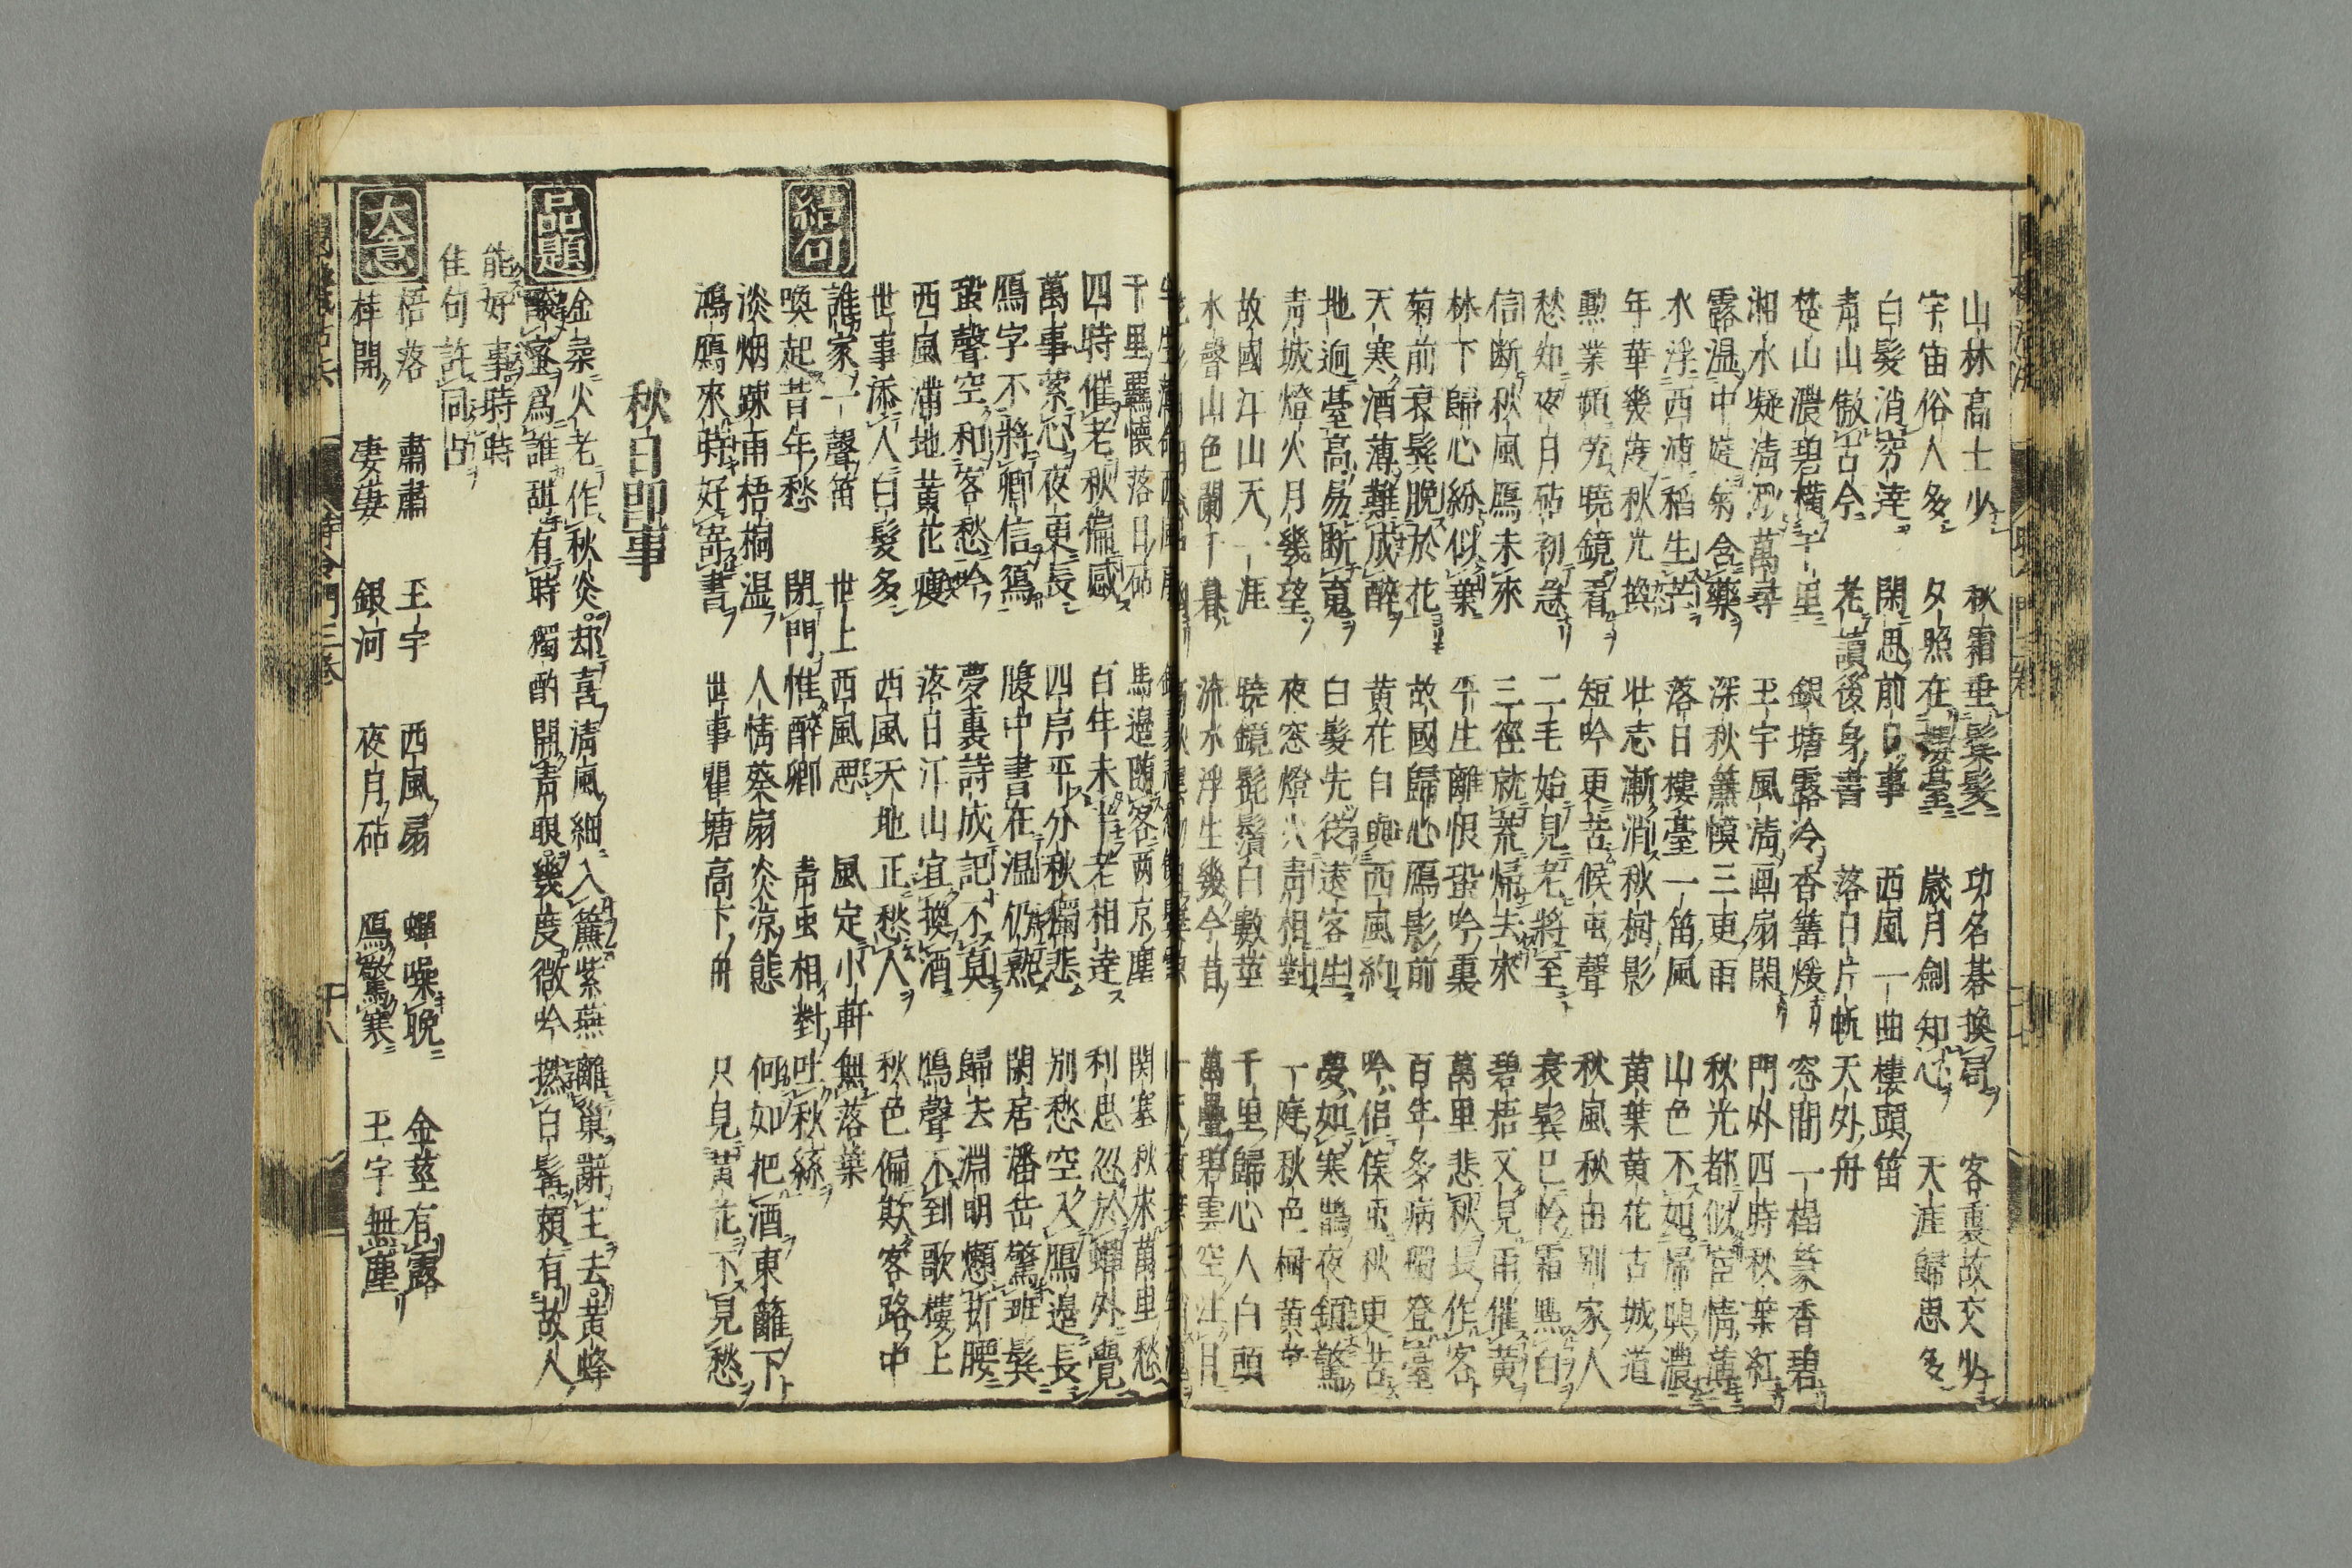 山林高士少 秋霜垂鬂髮 功名碁換局 客裏故交少
宇宙俗人多 夕照在樓臺 歳月劍知心 天涯歸思多
白髮消窮達 閑思前日事 西風一曲樓頭笛
青山傲古今 花讀後身書 落日片帆天外舟
楚山濃碧橫千里 銀塘露冷香篝煖 窓間一榻篆香碧
湘水凝清 萬尋 玉宇風清画扇閑 門外四時秋葉紅
露温中庭菊含藥 深秋簾幙三更雨 秋光都似宦情薄
水浮西 稻生芒 落日樓臺一笛風 山色不如歸興濃
年華幾度秋光換 壯志漸消秋樹影 黄葉黄花古城道
勲業頻 曉鏡看 短吟更苦候虫聲 秋風秋雨別家人
愁如夜月砧初急 二毛始見老將至 衰鬂已 霜 白
信断秋風鴈未來 三徑就荒歸去來 碧梧又見雨催黄
林下歸心紛似葉 平生離恨蛩吟裏 萬里悲秋長作客
菊前衰鬂晚於花 故國歸心鴈影前 百年多病獨登臺
天寒酒薄難成醉 黄花白與西風約 吟侶 虫秋更苦
地迥臺高易断䰟 白髮先從遠客生 夢如寒鵲夜頻驚
青城燈火月幾望 夜窓燈火青相對 一庭秋色桐黄
故國江山天一涯 曉鏡髭鬚白數莖 千里歸心人白頭
水聲山色闌干暮 流水浮生幾今昔 萬疊碧雲空 月
千里羈懷落日砧 馬邊随客两京塵 関塞秋來萬里愁
四時催老秋偏感 百年未半老相逹 利思忽於蟬外覺
萬事縈心夜更長 四序平分秋獨悲 別愁空入鴈邊長
鴈字不將鄕信寫 腹中書在温仍熟 閑居潘岳驚班鬂
蛩聲空和客愁吟 夢裏詩成記不真 歸去淵明懶折腰
西風滿地黄花瘦 落日江山宜換酒 鴈聲不到歌樓上
世事添人白髮多 西風天地正愁人 秋色偏欺客路中
結句
誰家一聲笛 世上西風思 風定小軒無落葉
喚起昔年愁 閉門惟醉鄕 青虫相對吐秋絲
淡烟踈雨梧桐湿 人情蔡扇炎凉態 何如把酒東籬下
鴻鴈來時好寄書 世事瞿塘高下舟 只見黄花不見愁
秋日即事
品題
金柔火老作秋炎却喜清風細入簾紫燕離巢辭主去黄蜂
蜜爲誰甜有時獨酌開青眼幾度微吟撚白髯頼有故人
能好事時時
佳句許同占
大意
梧落 肅肅 玉宇 西風扇 蟬噪晚 金莖有露
桂開 凄凄 銀河 夜月砧 鴈驚寒 玉宇無塵
十八